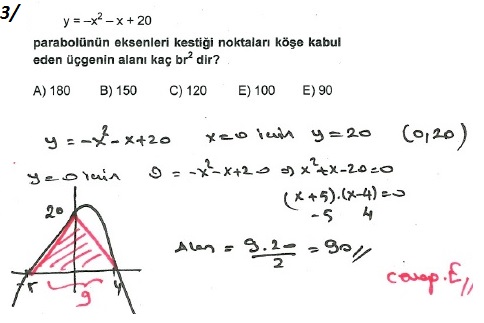 3/
y = –x² – x + 20
parabolünün eksenleri kestiği noktaları köşe kabul
eden üçgenin alanı kaç br² dir?
A) 180 B) 150 C) 120 E) 100 E) 90
y = -x²-x+20 x=0 icin y=20 (0,20)
y=0 icin 0 = -x²-x+20 ⇒ x²+x-20=0
(x+5).(x-4)=0
-5 4
20
Alan = 9.20/2 = 90//
-5 4
9
cevap.E//